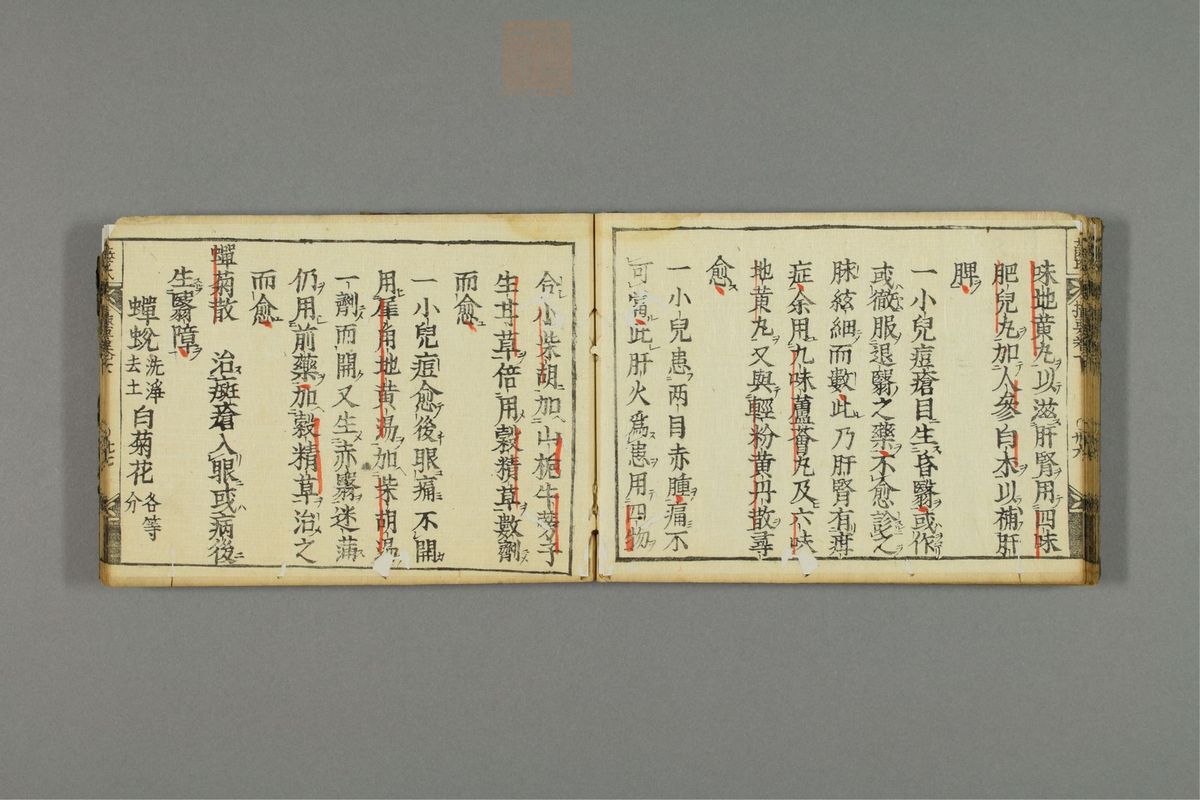 味地黄丸以滋肝腎用四味
肥兒丸加人參白朮以補肝
脾
一小兒痘瘡目生昏翳或作
或徹服退翳之藥不愈診之
脉弦細而數此乃肝腎有疳
症余用九味蘆薈丸及六味
地黄丸又與輕粉黄丹散尋
愈
一小兒患两目赤腫痛不
可當此肝火爲患用四物
合小柴胡加山梔牛蒡子
生甘草倍用穀精草數劑
而愈
一小兒痘愈後眼痛不開
用犀角地黄湯加柴胡
一劑而開又生赤翳迷蒲
仍用前藥加穀精草治之
而愈
蟬菊散 治斑瘡入眼或病後
生翳障
蟬蛻洗淨去土 白菊花各等分